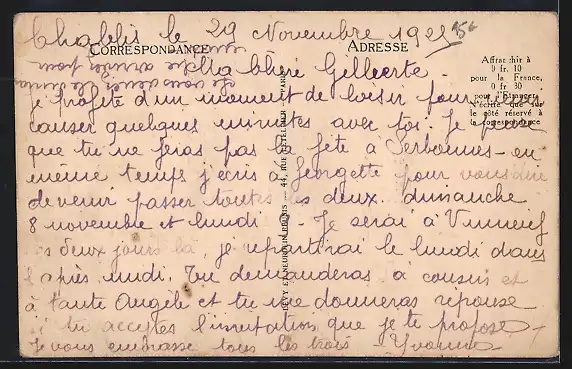 Chablis le 29 Novembre 192
CORRESPONDANCE
ADRESSE
Affranchir à
0 fr. 10
pour la France,
0 fr 30
pour l'Etranger
N'écrire que sur
le côté réservé à
la correspondance
Ma chère Gilberte.
je profite d'un moment de loisir pour
causer quelques minutes avec toi. Je pense
que tu ne feras pas la fête à Serbonnes en
même temps j'écris à Georgette pour vous dire
de venir passer toutes les deux dimanche
8 novembre et lundi - Je serai à
deux jours là, je repartirai le lundi dans
l'après midi. Tu demanderas à cousin et
à tante Angèle et tu me donneras réponse
si tu acceptes l'invitation que je te propose
Je vous embrasse tous les trois - Yvonne
LEVY ET NEURDEIN REUNIS - 44, RUE LETELLIER, PARIS